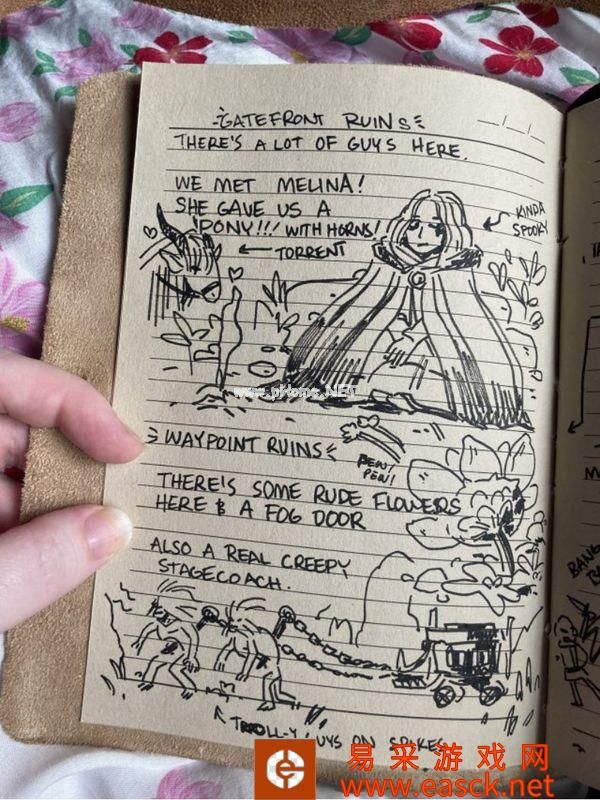 GATEFRONT RUINS
THERE'S A LOT OF GUYS HERE.
WE MET MELINA!
SHE GAVE US A
PONY!!! WITH HORNS!
KINDA
SPOOKY
TORRENT
WAYPOINT RUINS
PEW!
PEW!
THERE'S SOME RUDE FLOWERS
HERE & A FOG DOOR
ALSO A REAL CREEPY
STAGECOACH.
TROLL-Y GUYS ON SPIKES
BANG
易采游戏网
www.easck.net